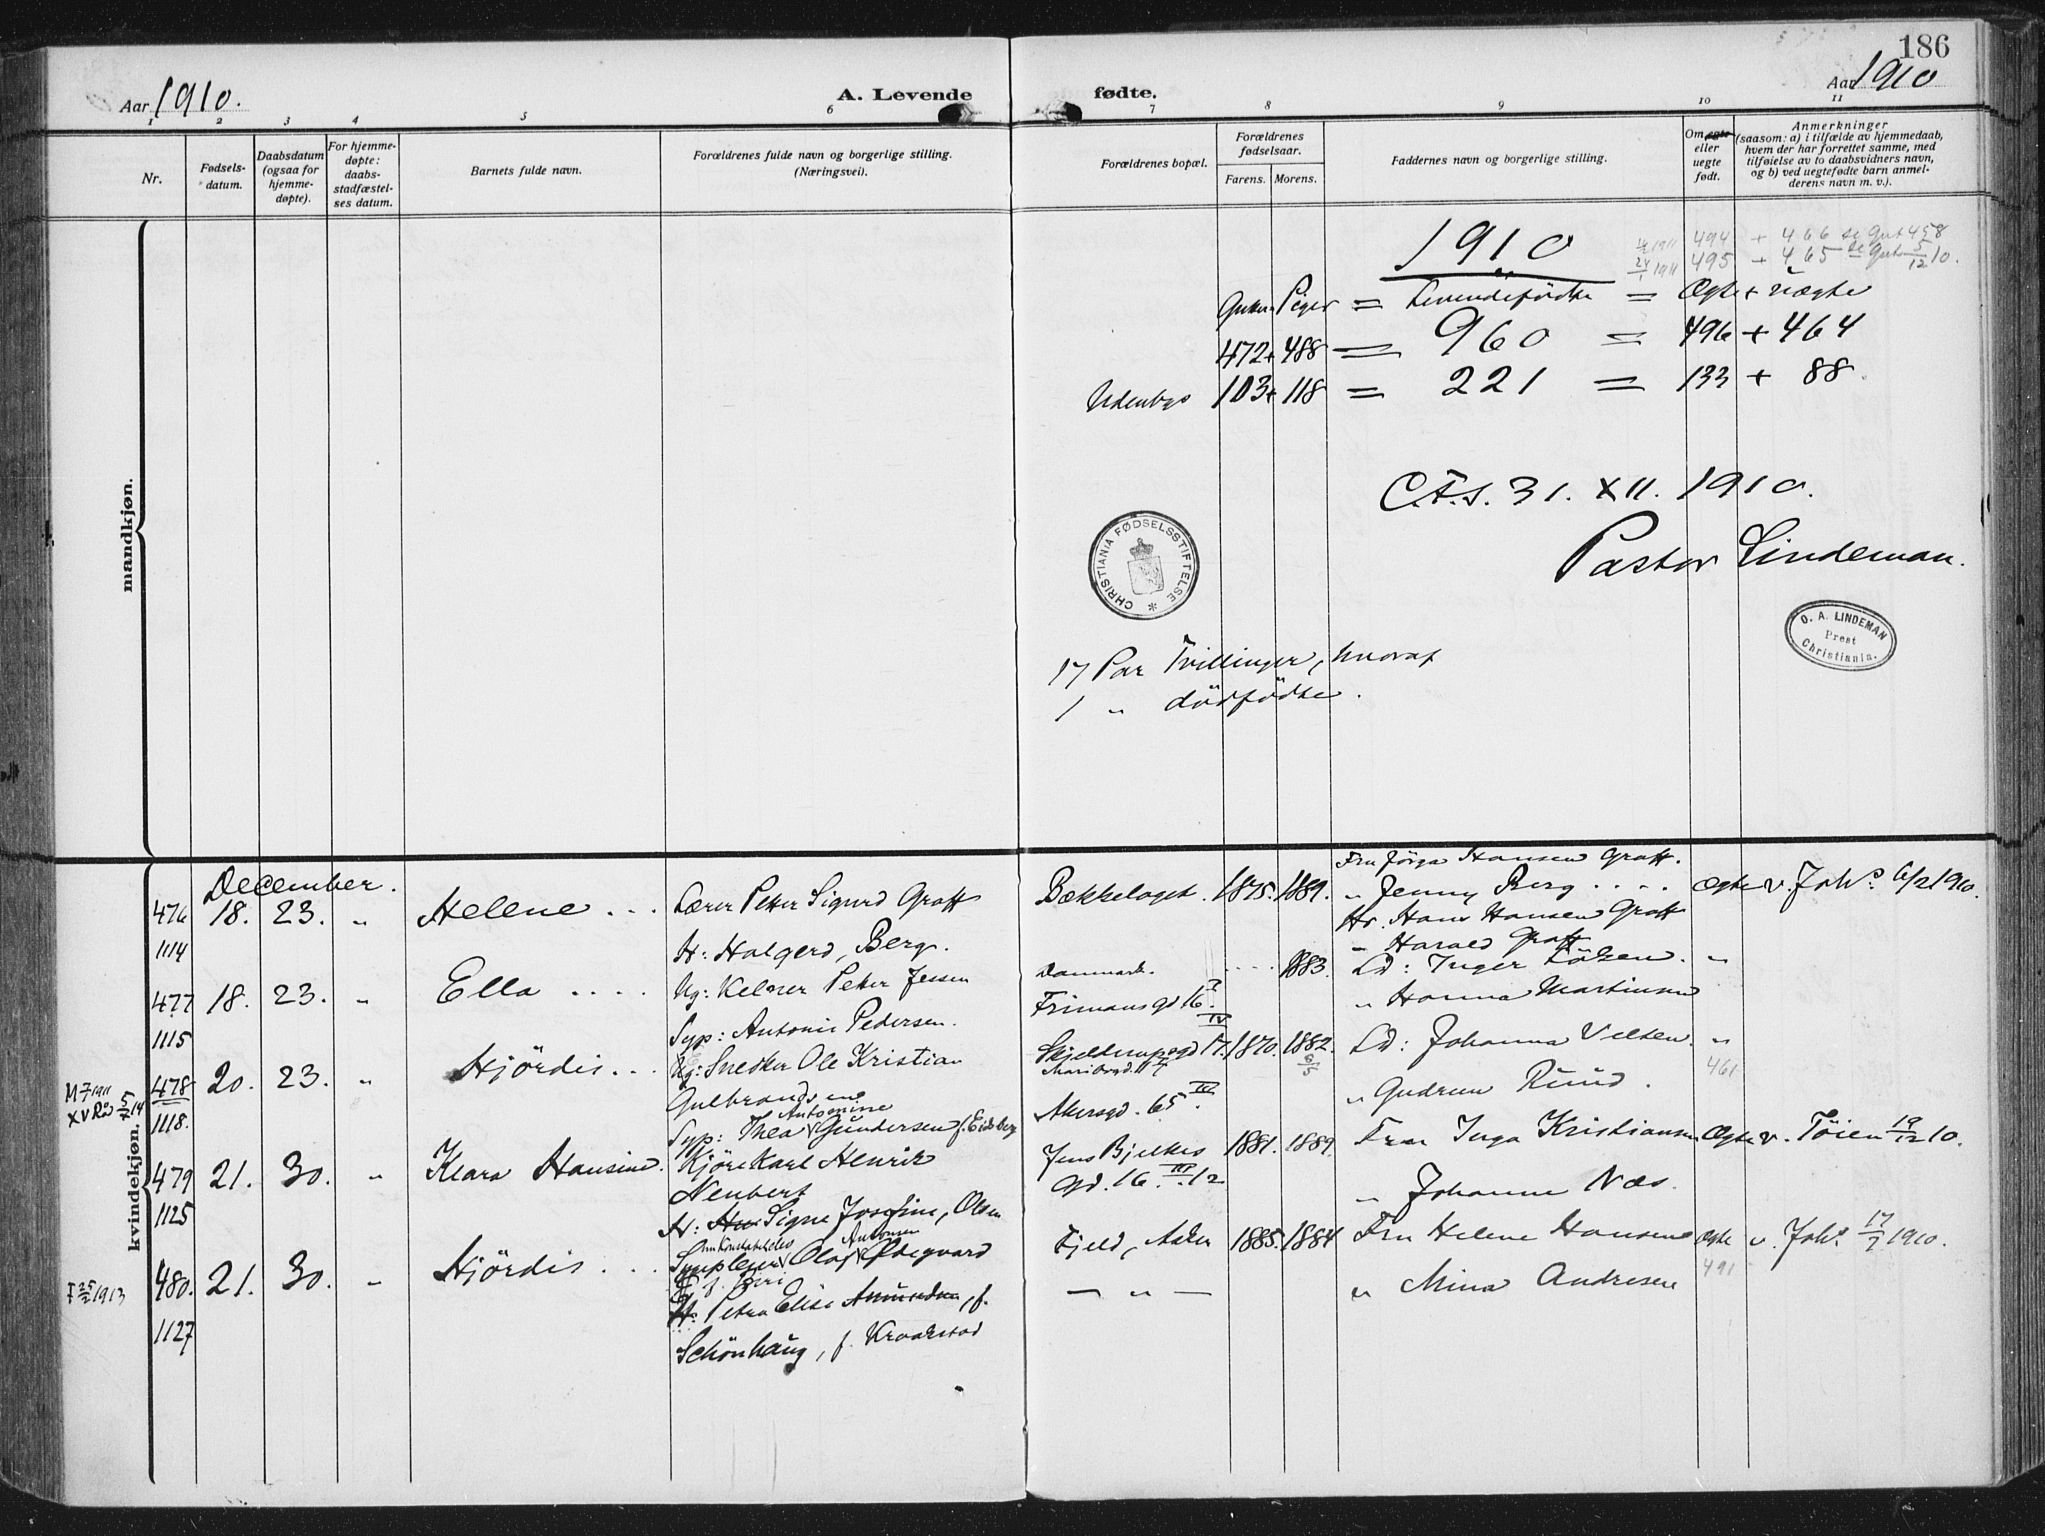 186
Aar 1910.
A. Levende fødte.
Aar 1910
1 2 3 4 5 6 7 8 9 10 11
Nr.
Fødsels-
datum.
Daabsdatum
(ogsaa for
hjemme-
døpte).
For hjemme-
døpte:
daabs-
stadfæstel-
ses datum.
Barnets fulde navn.
Forældrenes fulde navn og borgerlige stilling.
(Næringsvei).
Forældrenes bopæl.
Forældrenes
fødselsaar.
Farens. Morens.
Faddernes navn og borgerlige stilling.
Om egte
eller
uegte
født.
Anmerkninger
(saasom: a) i tilfælde av hjemmedaab,
hvem der har forrettet samme, med
tilføielse av to daabsvidners navn,
og b) ved uegtefødte barn anmel-
derens navn m. v.).
mandkjøn.
1910
494 + 466 se Gut 458
495 + 465 se Gut 5/12 10.
Gutter Piger = Levendefödte = Ægte + uægte
472 + 488 = 960 = 496 + 464
Udenbys 103 + 118 = 221 = 133 + 88.
C.F.S. 31. XII. 1910.
Pastor Lindeman.
CHRISTIANIA FØDSELSSTIFTELSE
O. A. LINDEMAN
Prest
Christiania.
17 Par Tvillinger, hvoraf
1 " dödfödte.
kvindekjøn.
December.
476 18. 23. " Helene ... Lærer Peter Sigurd Graff Bækkelaget. 1875. 1889. Fru Jörga Hansen Graff. Ægte v. Johs. 6/2 1910.
" Jenny Berg ....
Hr. Hans Hansen Graff
1114 H: Holgerd, Berg. " Harald Graff
477 18. 23. " Ella .... Ug: Kelner Peter Jensen Danmark. .... 1883. Ld: Inger Folsen. "
Frimansgd 16 " Hanna Martinsen
1115 Syp: Antonie Pedersen.
478 20. 23. " Hjördis ... Ug: Snedker Ole Kristian Skjelderupsgd 17. 1870. 1882. Ld: Johanna Velsen. "
8/5 461
Gulbrandsen Akersgd. 65 III. " Gudrun Ruud.
1118. Antonine
Syp: Thea Gundersen f. Eidsberg
479 21. 30. " Klara Hansine. Kjörekarl Henrik Jens Bjelkes 1881. 1889. Frue Inga Kristiansen Ægte v. Töien 19/12 10.
Neubert gd. 16. III. 12 " Johanne Næs.
1125 H: Signe Josefine, Olsen
480. 21. 30. " Hjördis ... Olaf Ødegaard Fjeld, Aker 1885. 1884 Fru Helene Hansen Ægte v. Johs. 17/7 1910.
491
f 25/2 1913 f. Biri — " — " Mina Andresen
H: Petra Elise Amundsen, f.
1127 Schönhaug, f. Kraakstad